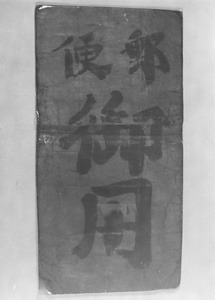 郵便
御用